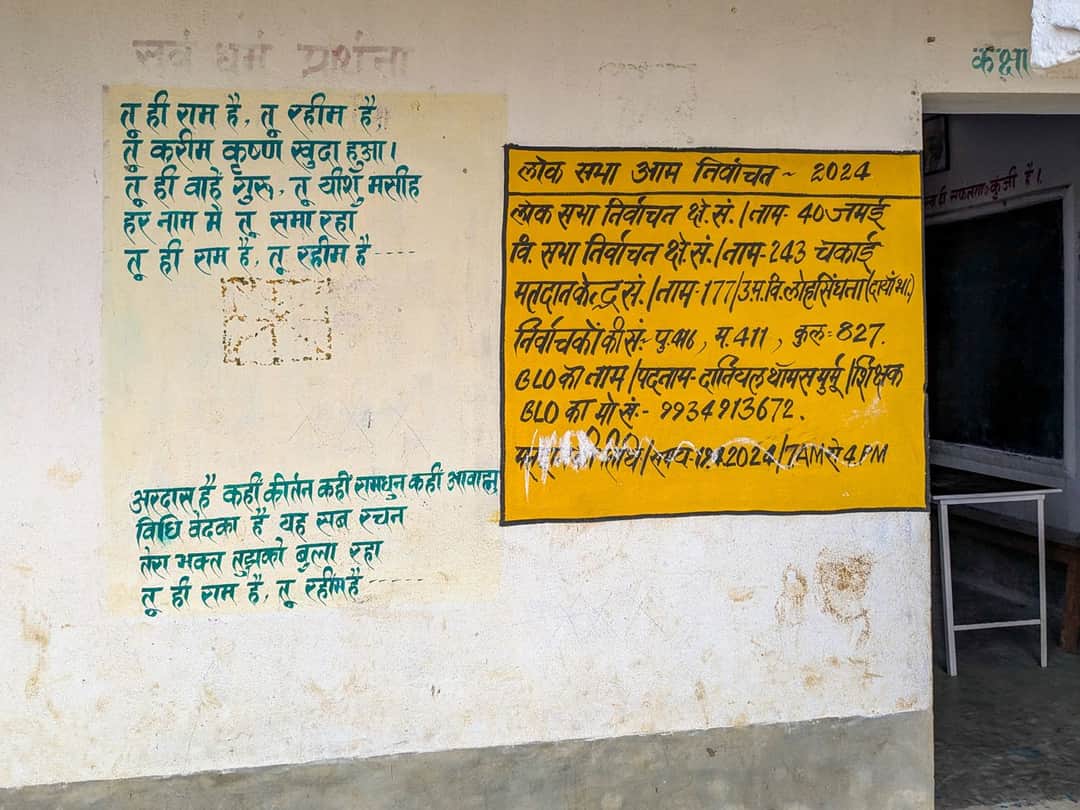 सर्व धर्म प्रार्थना
तू ही राम है, तू रहीम है,
तू करीम कृष्ण खुदा हुआ।
तू ही वाहे गुरू, तू यीशु मसीह
हर नाम मे तू समा रहा
तू ही राम है, तू रहीम है
अरदास है कहीं कीर्तन कहीं रामधुन कहीं आवाह्न
विधि वेदका है यह सब रचन
तेरा भक्त तुझको बुला रहा
तू ही राम है, तू रहीम है
लोक सभा आम निर्वाचन ~ 2024
लोक सभा निर्वाचन क्षे.सं./नाम- 40 जमुई
वि. सभा निर्वाचन क्षे.सं./नाम-243 चकाई
मतदान केन्द्र सं./नाम-177/उ.म.वि.लोहसिंघना(दायाँ भा.)
निर्वाचकों की सं:- पु.416, म.411, कुल=827.
BLO का नाम/पदनाम- दानियल थॉमस मुर्मू/शिक्षक
BLO का मो.सं:- 9934913672.
तिथि/समय- 2024/7AM से 4PM
कक्षा
सफलता कुंजी है।